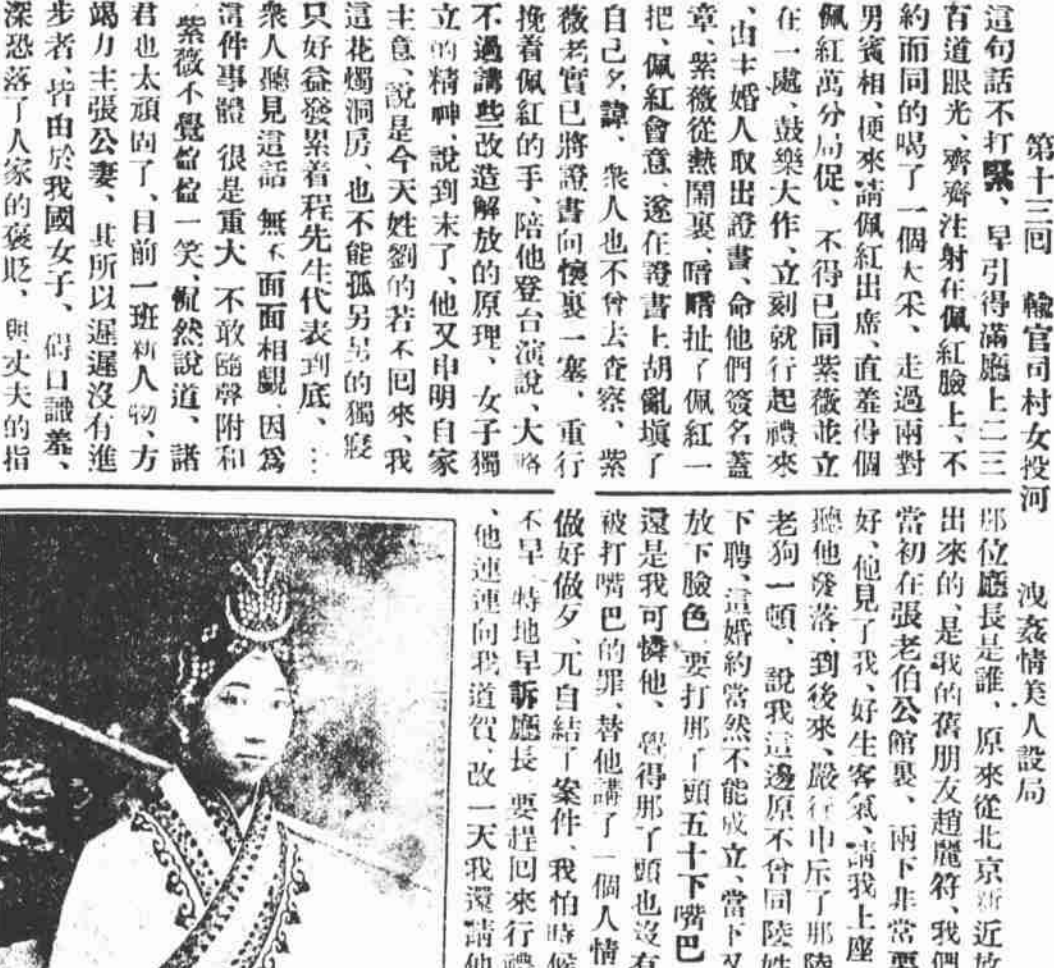 第十三回　輸官司村女投河　洩姦情美人設局
這句話不打緊、早引得滿廳上二三
百道眼光、齊齊注射在佩紅臉上、不
約而同的喝了一個大采、走過兩對
男賓相、梗來請佩紅出席、直羞得個
佩紅萬分局促、不得已同紫薇並立
在一處、鼓樂大作、立刻就行起禮來
、由主婚人取出證書、命他們簽名蓋
章、紫薇從熱鬧裏、暗暗扯了佩紅一
把、佩紅會意、遂在證書上胡亂塡了
自己名諱、衆人也不曾去查察、紫
薇老實已將證書向懷裏一塞、重行
挽着佩紅的手、陪他登台演說、大略
不過講些改造解放的原理、女子獨
立的精神、說到末了、他又申明自家
主意、說是今天姓劉的若不回來、我
這花燭洞房、也不能孤另另的獨寢
只好益發累着程先生代表到底、…
衆人聽見這話　無不面面相覷　因爲
這件事體　很是重大　不敢隨聲附和
紫薇不覺盈盈一笑、慨然說道、諸
君也太頑固了、目前一班新人物、方
竭力主張公妻、其所以遲遲沒有進
步者、皆由於我國女子、個個識羞、
深恐落了人家的褒貶、與丈夫的指
那位廳長是誰、原來從北京新近放
出來的、是我的舊朋友趙麗符、我們
當初在張老伯公館裏、兩下非常要
好、他見了我、好生客氣、請我上座
聽他發落、到後來、嚴行申斥了那陸
老狗一頓、說我這邊原不曾同陸姓
下聘、這婚約當然不能成立、當下又
放下臉色、要打那丫頭五十下嘴巴
還是我可憐他、覺得那丫頭也沒有
被打嘴巴的罪、替他講了一個人情
做好做歹、兀自結了案件、我怕時候
不早、特地早訴廳長、要趕回來行禮
、他連連向我道賀、改一天我還請他